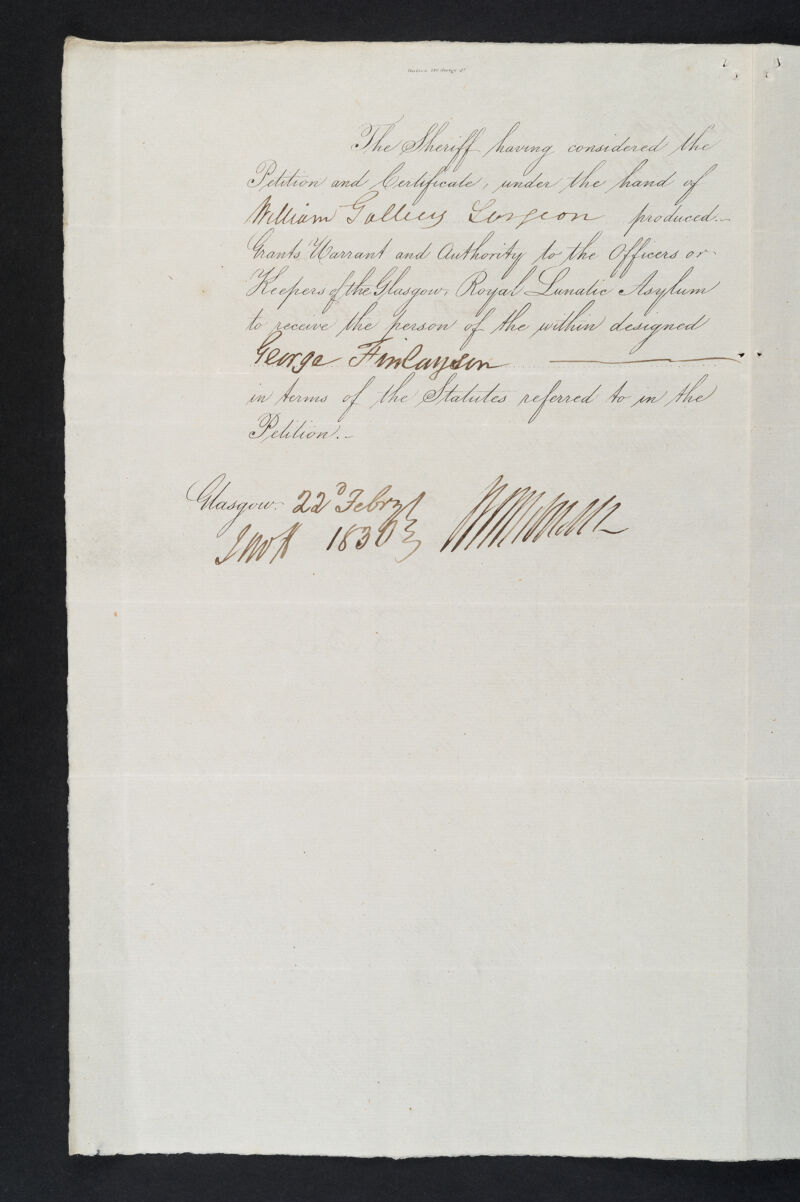 The Sheriff having considered the
Petition and Certificate, under the hand of
William Surgeon produced.
Grants Warrant and Authority to the Officers or
Keepers of the Glasgow Royal Lunatic Asylum
to receive the person of the within designed
George Finlayson
in terms of the Statutes referred to in the
Petition.
Glasgow 22d Febry
1830